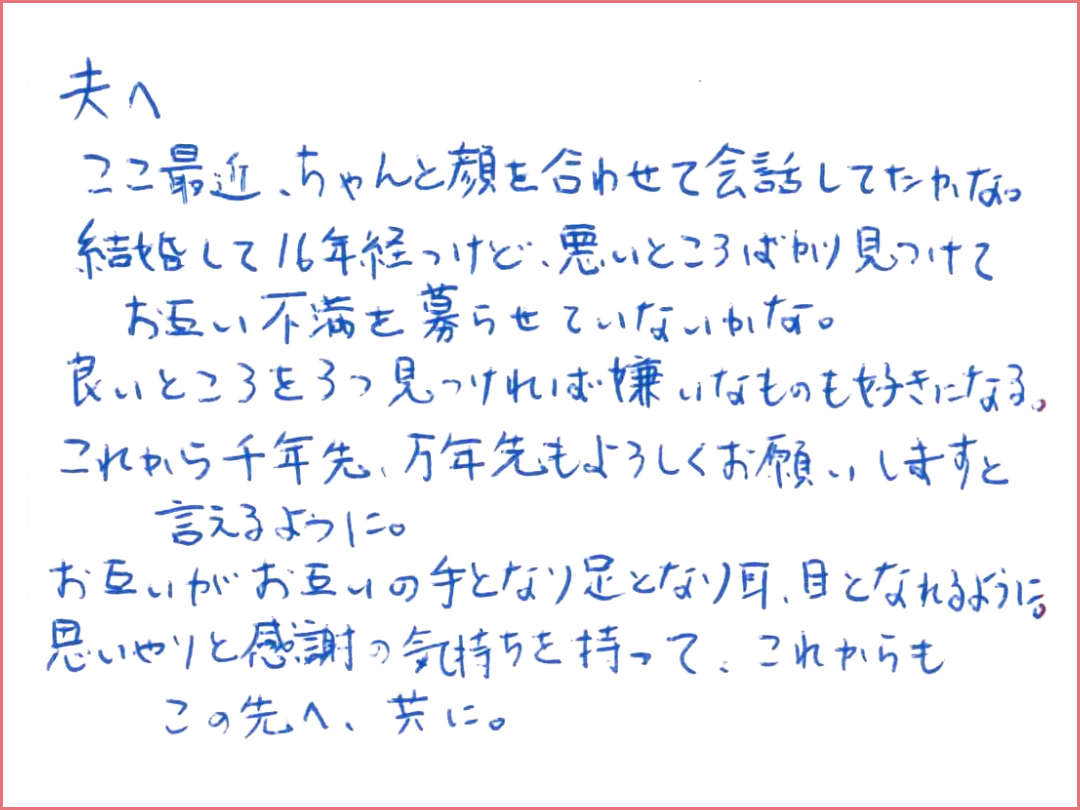 夫へ
ここ最近、ちゃんと顔を合わせて会話してたかな。
結婚して16年経つけど、悪いところばかり見つけて
お互い不満を募らせていないかな。
良いところを3つ見つければ嫌いなものも好きになる。
これから千年先、万年先もよろしくお願いしますと
言えるように。
お互いがお互いの手となり足となり耳、目となれるように。
思いやりと感謝の気持ちを持って、これからも
この先へ、共に。